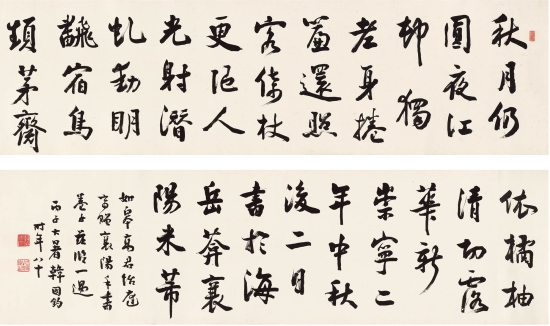 秋月仍
圓夜江
邨獨
老身捲
簾還照
客倚杖
更隨人
光射潛
虬動明
飜宿鳥
頻茅齋
依橘柚
清切露
華新
崇寧二
年中秋
後二日
書於海
岳葊襄
陽米芾
如皋高君庭
寄贈襄陽書
卷子兹臨一過
丙子大暑韓國鈞
时年八十